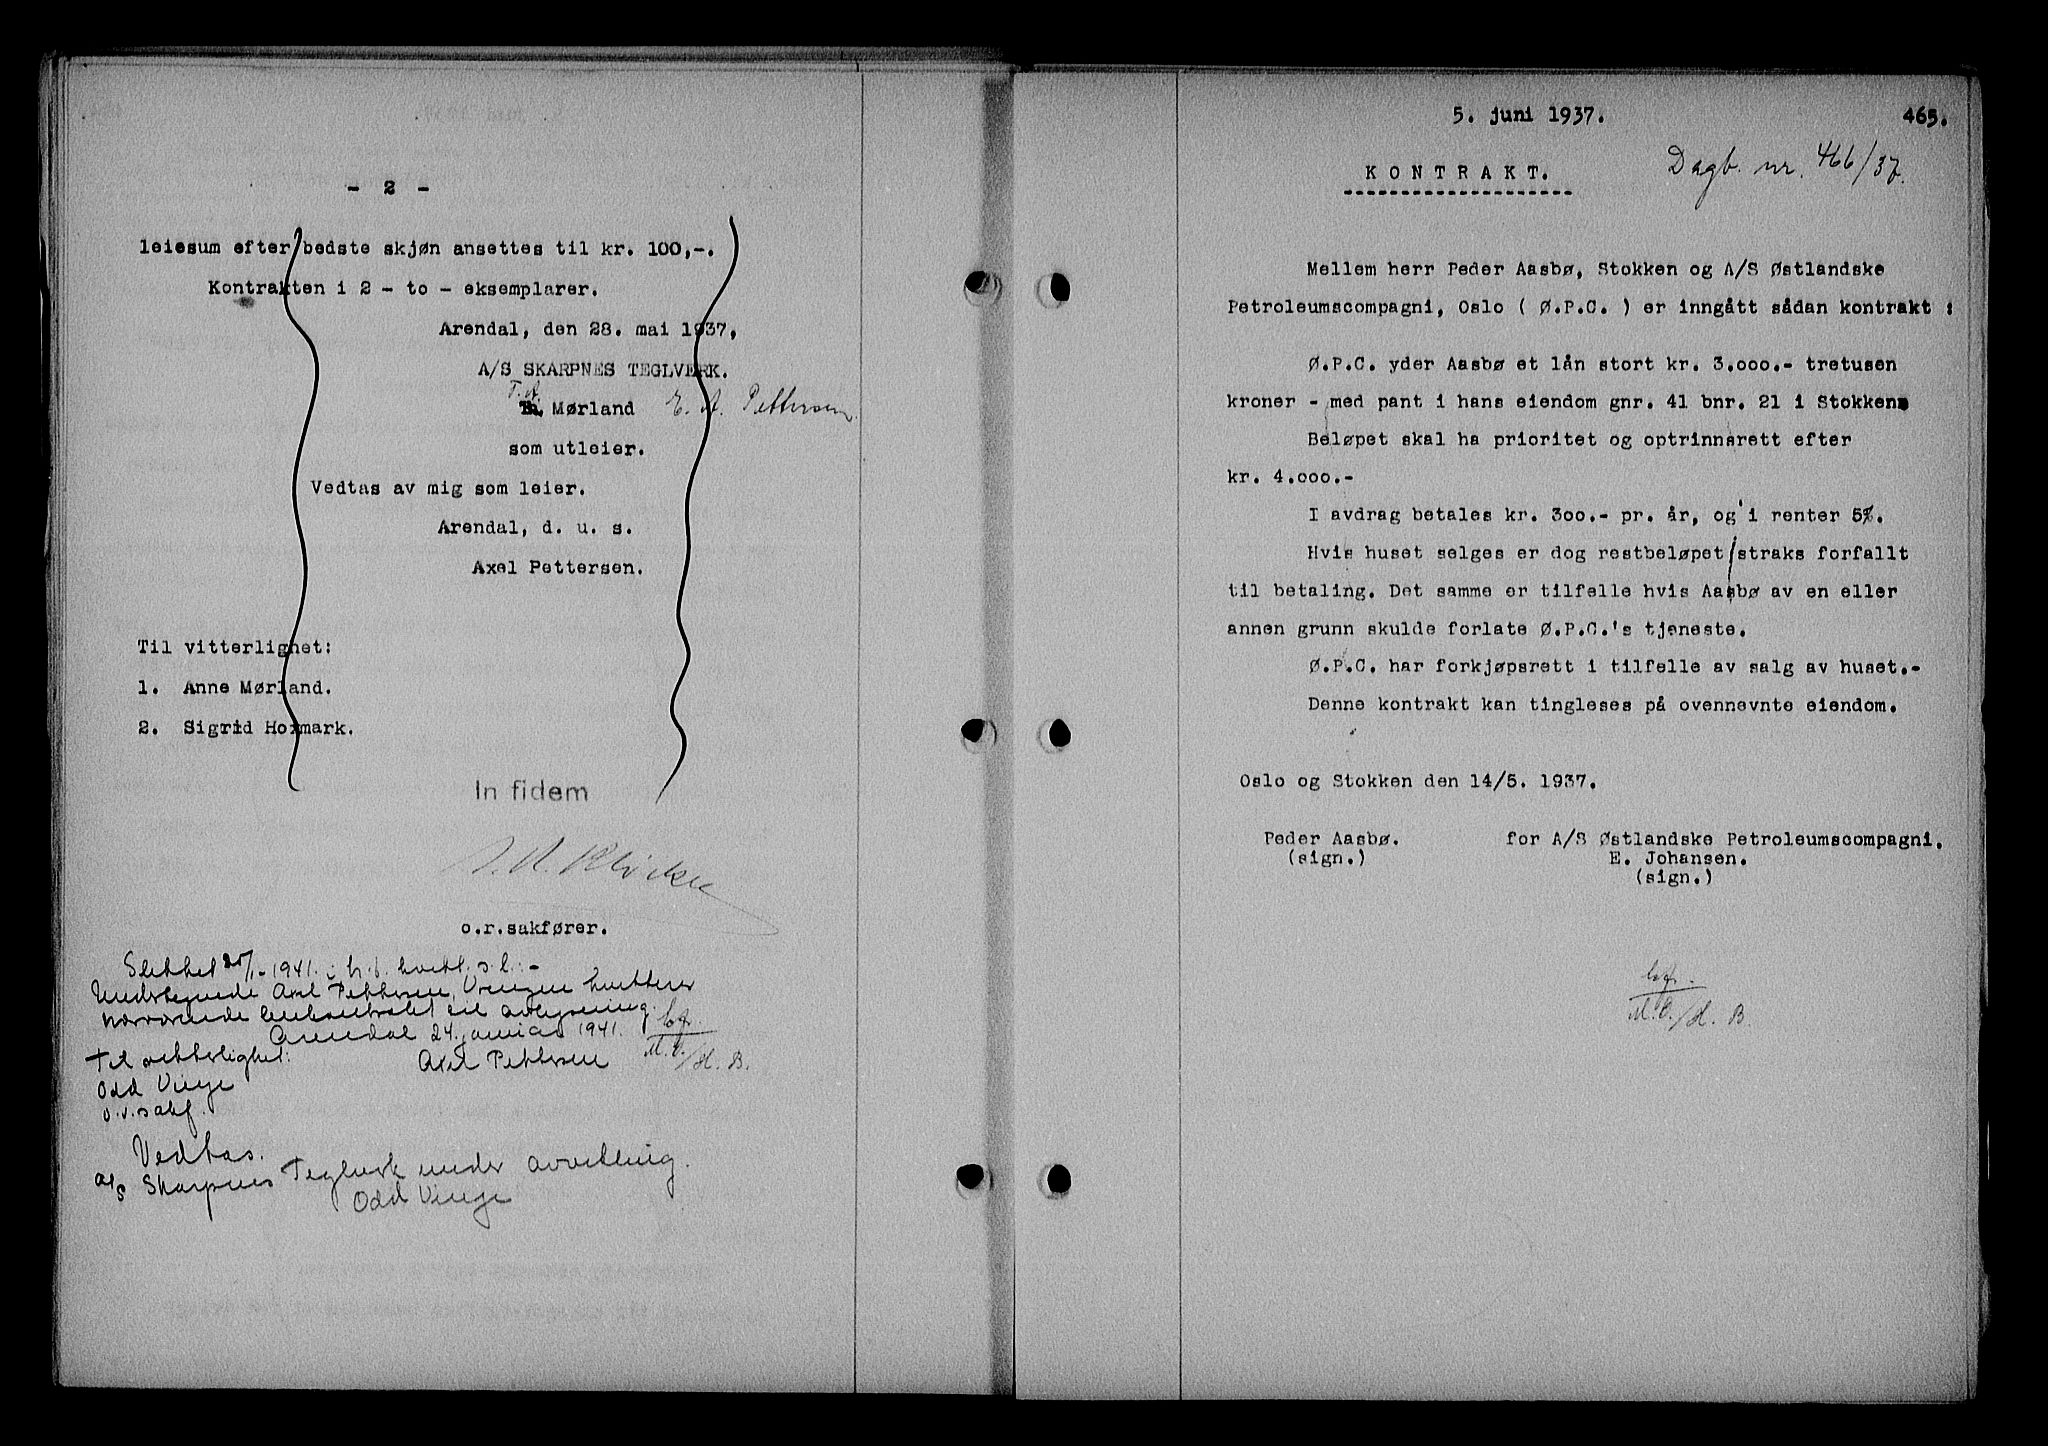 - 2 -
leiesum efter bedste skjøn ansettes til kr. 100,-.
Kontrakten i 2 - to - eksemplarer.
Arendal, den 28. mai 1937,
A/S SKARPNES TEGLVERK.
T.A. Mørland E. A. Pettersen
som utleier.
Vedtas av mig som leier.
Arendal, d. u. s.
Axel Pettersen.
Til vitterlighet:
1. Anne Mørland.
2. Sigrid Hormark.
In fidem
o.r.sakfører.
Slettet 25/1-1941 i h.t. kvitt. s.l.:-
Undertegnede Axel Pettersen, Vrengen kvitterer
nærværende leiekontrakt til avlysning.
Arendal 24. januar 1941.
Til vitterlighet: Axel Pettersen
Odd Vinje
o.r.sakf.
bf.
M.O./H.B.
Vedtas.
A/S Skarpnes Teglverk under avvikling.
Odd Vinje
5. juni 1937. 465.
KONTRAKT. Dagb. nr. 466/37.
Mellem herr Peder Aasbø, Stokken og A/S Østlandske
Petroleumscompagni, Oslo ( Ø.P.C. ) er inngått sådan kontrakt :
Ø.P.C. yder Aasbø et lån stort kr. 3.000.- tretusen
kroner - med pant i hans eiendom gnr. 41 bnr. 21 i Stokken
Beløpet skal ha prioritet og optrinnsrett efter
kr. 4.000.-
I avdrag betales kr. 300.- pr. år, og i renter 5%.
Hvis huset selges er dog restbeløpet straks forfallt
til betaling. Det samme er tilfelle hvis Aasbø av en eller
annen grunn skulde forlate Ø.P.C.'s tjeneste.
Ø.P.C. har forkjøpsrett i tilfelle av salg av huset.-
Denne kontrakt kan tingleses på ovennevnte eiendom.
Oslo og Stokken den 14/5. 1937.
Peder Aasbø. for A/S Østlandske Petroleumscompagni.
(sign.) E. Johansen.
(sign.)
bf.
M.O./H.B.